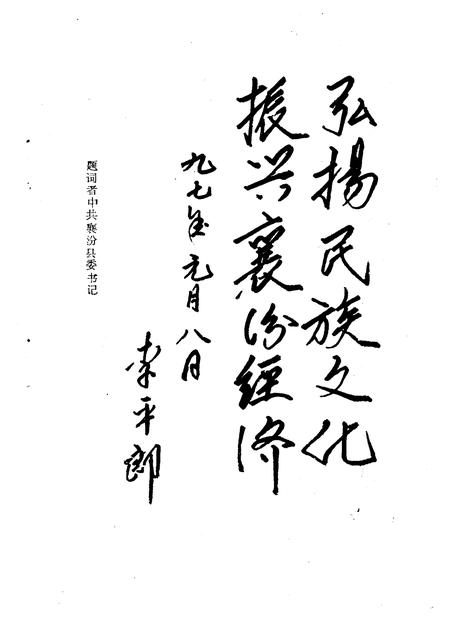 弘揚民族文化
振兴襄汾經济
九七年元月八日
李平郎
题词者中共襄汾县委书记